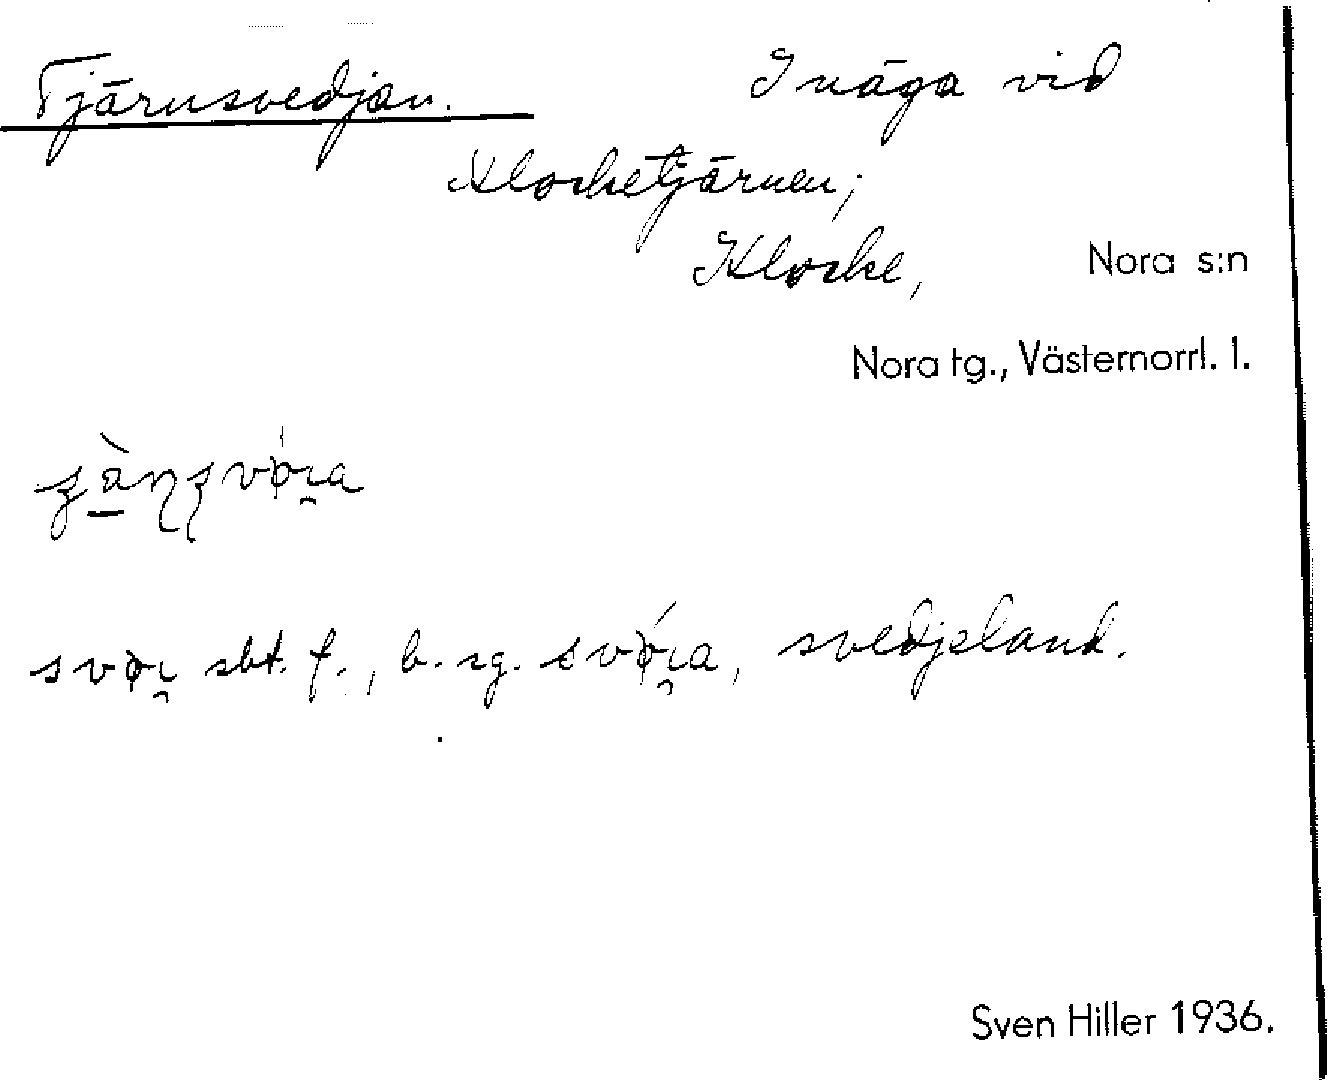 Tjärnsvedjan. Inäga vid
Klocketjärnen;
Klocke, Nora s:n
Nora tg., Västernorrl. l.
sbt. f., b. sg. svedjeland.
Sven Hiller 1936.